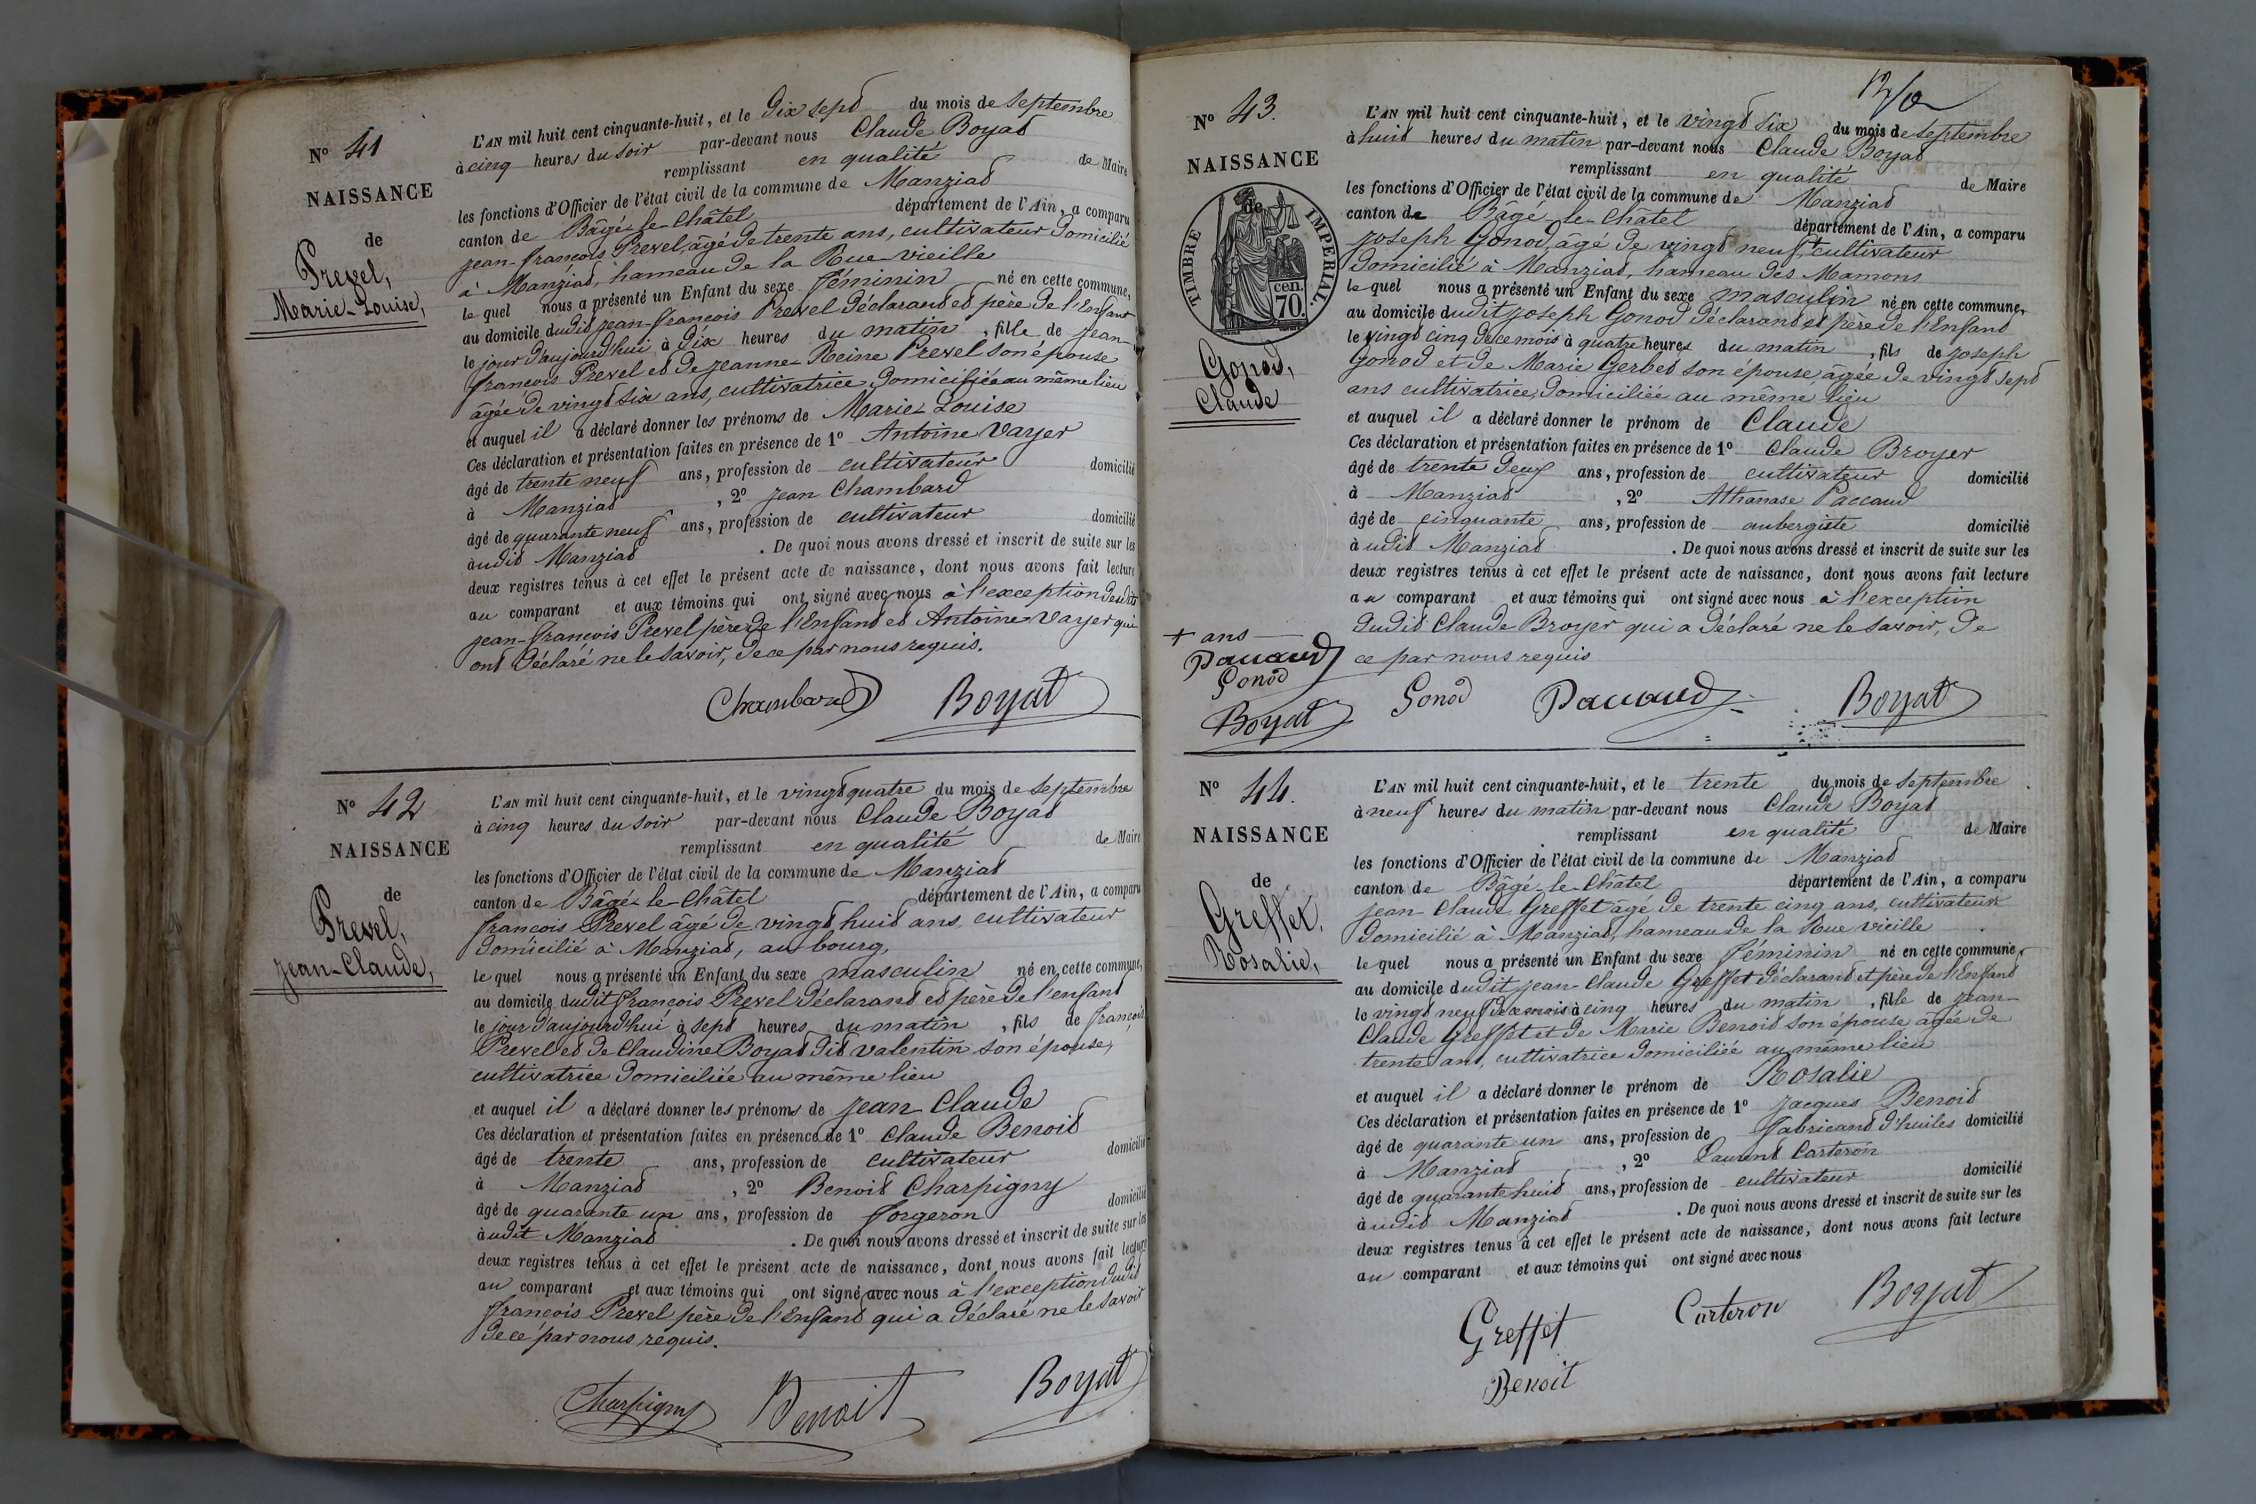 Nº 41
NAISSANCE
de
Prevel,
Marie-Louise,
L'AN mil huit cent cinquante-huit, et le dix sept du mois de Septembre
à cinq heures du soir par-devant nous Claude Boyat
remplissant en qualité de Maire
les fonctions d'Officier de l'état civil de la commune de Manziat
canton de Bâgé-le-Châtel département de l'Ain, a comparu
jean-françois Prevel, âgé de trente ans, cultivateur domicilié
à Manziat, hameau de la Rue-vieille
le quel nous a présenté un Enfant du sexe féminin né en cette commune,
au domicile dudit jean-françois Prevel déclarant et père de l'Enfant
le jour d'aujourd'hui à dix heures du matin, fille de jean-
françois Prevel et de jeanne-Reine Prevel son épouse
âgée de vingt six ans, cultivatrice, domiciliée au même lieu
et auquel il a déclaré donner les prénoms de Marie-Louise
Ces déclaration et présentation faites en présence de 1º Antoine Vayer
âgé de trente neuf ans, profession de cultivateur domicilié
à Manziat, 2º jean Chambard
âgé de quarante neuf ans, profession de cultivateur domicilié
audit Manziat. De quoi nous avons dressé et inscrit de suite sur les
deux registres tenus à cet effet le présent acte de naissance, dont nous avons fait lecture
au comparant et aux témoins qui ont signé avec nous à l'exception desdits
jean-françois Prevel père de l'Enfant et Antoine Vayer qui
ont déclaré ne le savoir, de ce par nous requis.
Chambard Boyat
Nº 42
NAISSANCE
de
Prevel,
jean-Claude,
L'AN mil huit cent cinquante-huit, et le vingt quatre du mois de Septembre
à cinq heures du soir par-devant nous Claude Boyat
remplissant en qualité de Maire
les fonctions d'Officier de l'état civil de la commune de Manziat
canton de Bâgé-le-Châtel département de l'Ain, a comparu
françois Prevel âgé de vingt huit ans, cultivateur
domicilié à Manziat, au bourg,
le quel nous a présenté un Enfant du sexe masculin né en cette commune,
au domicile dudit françois Prevel déclarant et père de l'enfant
le jour d'aujourd'hui à sept heures du matin, fils de françois
Prevel et de Claudine Boyat dit Valentin son épouse,
cultivatrice domiciliée au même lieu
et auquel il a déclaré donner les prénoms de jean Claude
Ces déclaration et présentation faites en présence de 1º Claude Benoit
âgé de trente ans, profession de cultivateur domicilié
à Manziat, 2º Benoit Charpigny
âgé de quarante un ans, profession de forgeron domicilié
audit Manziat. De quoi nous avons dressé et inscrit de suite sur les
deux registres tenus à cet effet le présent acte de naissance, dont nous avons fait lecture
au comparant et aux témoins qui ont signé avec nous à l'exception dudit
françois Prevel père de l'Enfant qui a déclaré ne le savoir
de ce par nous requis.
Charpigny Benoit Boyat
Nº 43.
NAISSANCE
de
TIMBRE IMPERIAL.
cen.
70.
Gonod,
Claude
L'AN mil huit cent cinquante-huit, et le vingt six du mois de septembre
à huit heures du matin par-devant nous Claude Boyat
remplissant en qualité de Maire
les fonctions d'Officier de l'état civil de la commune de Manziat
canton de Bâgé-le-Châtel département de l'Ain, a comparu
joseph Gonod, âgé de vingt neuf + cultivateur
domicilié à Manziat, hameau des Mamons
le quel nous a présenté un Enfant du sexe masculin né en cette commune,
au domicile dudit joseph Gonod déclarant et père de l'Enfant
le vingt cinq de ce mois à quatre heures du matin, fils de joseph
Gonod et de Marie Gerbet son épouse, âgée de vingt sept
ans cultivatrice, domiciliée au même lieu
et auquel il a déclaré donner le prénom de Claude
Ces déclaration et présentation faites en présence de 1º Claude Broyer
âgé de trente deux ans, profession de cultivateur domicilié
à Manziat, 2º Athanase Paccaud
âgé de cinquante ans, profession de aubergiste domicilié
audit Manziat. De quoi nous avons dressé et inscrit de suite sur les
deux registres tenus à cet effet le présent acte de naissance, dont nous avons fait lecture
au comparant et aux témoins qui ont signé avec nous à l'exception
dudit Claude Broyer qui a déclaré ne le savoir, de
ce par nous requis
+ ans
Paccaud
Gonod
Boyat
Gonod Paccaud Boyat
Nº 44.
NAISSANCE
de
Greffet,
Rosalie,
L'AN mil huit cent cinquante-huit, et le trente du mois de septembre
à neuf heures du matin par-devant nous Claude Boyat
remplissant en qualité de Maire
les fonctions d'Officier de l'état civil de la commune de Manziat
canton de Bâgé-le-Châtel département de l'Ain, a comparu
jean-Claude Greffet âgé de trente cinq ans, cultivateur
domicilié à Manziat, hameau de la Rue vieille
le quel nous a présenté un Enfant du sexe féminin né en cette commune,
au domicile dudit jean-Claude Greffet déclarant et père de l'Enfant
le vingt neuf de ce mois à cinq heures du matin, fille de jean-
Claude Greffet et de Marie Benoit son épouse âgée de
trente ans, cultivatrice domiciliée au même lieu
et auquel il a déclaré donner le prénom de Rosalie
Ces déclaration et présentation faites en présence de 1º jacques Benoit
âgé de quarante un ans, profession de fabricant d'huiles domicilié
à Manziat, 2º Laurent Carteron
âgé de quarante huit ans, profession de cultivateur domicilié
audit Manziat. De quoi nous avons dressé et inscrit de suite sur les
deux registres tenus à cet effet le présent acte de naissance, dont nous avons fait lecture
au comparant et aux témoins qui ont signé avec nous
Greffet Carteron Boyat
Benoit